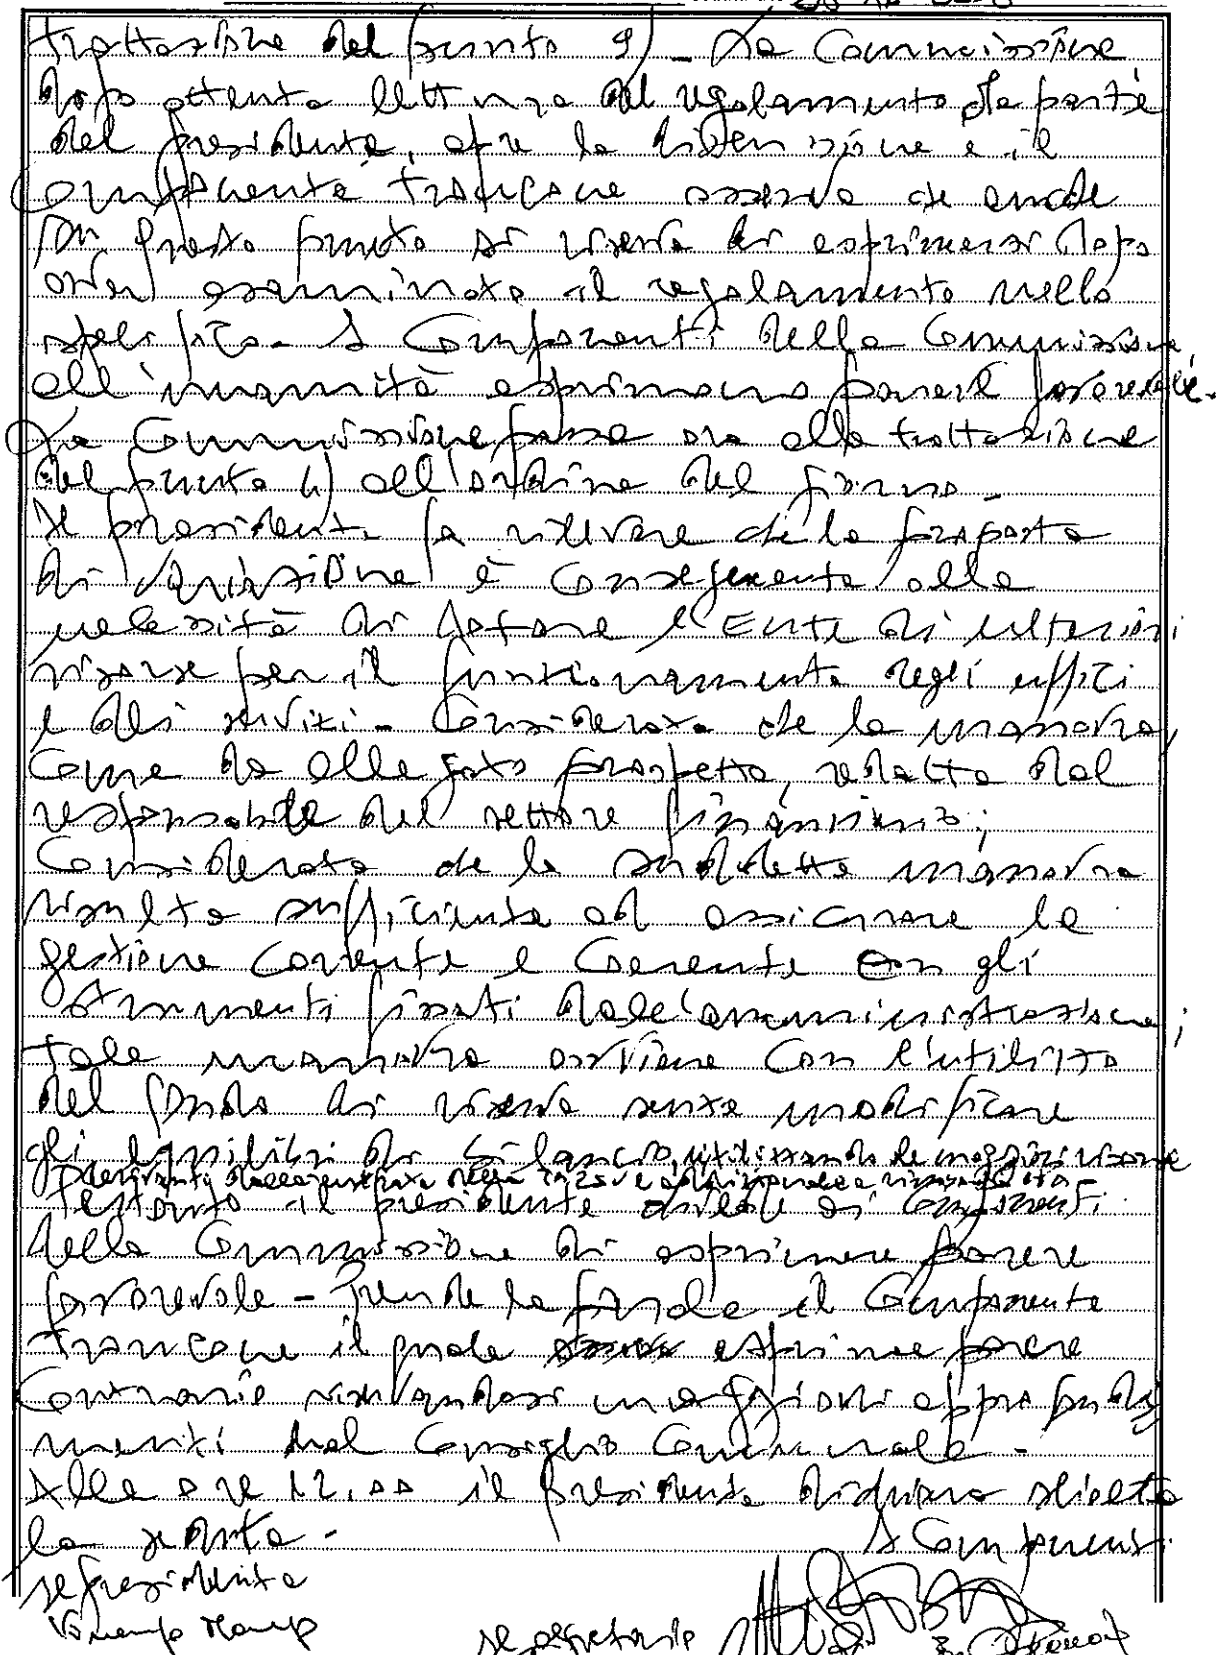 trattazione del punto 3) - La Commissione
dopo attenta lettura del regolamento da parte
del presidente, apre la discussione e il
Componente Trancone osserva che anche
su questo punto si riserva di esprimersi dopo
aver esaminato il regolamento nello
specifico - I Componenti della Commissione
all'unanimità esprimono parere favorevole.
La Commissione passa ora alla trattazione
del punto 4) all'ordine del giorno -
Il presidente fa rilevare che la proposta
di variazione è conseguente alla
necessità di dotare l'Ente di ulteriori
risorse per il funzionamento degli uffici
e dei servizi - Considerato che la manovra,
come da allegato prospetto, redatto dal
responsabile del settore finanziario;
Considerato che la suddetta manovra
risulta sufficiente ad assicurare la
gestione corrente e coerente con gli
strumenti fissati dall'amministrazione;
tale manovra avviene con l'utilizzo
del fondo di riserva senza modificare
gli equilibri di bilancio, utilizzando le maggiori risorse
derivanti dalla entrata della
Pertanto il presidente chiede ai Componenti
della Commissione di esprimere parere
favorevole - Prende la parola il Componente
Trancone il quale esprime parere
contrario riservandosi maggiori approfondi
menti nel Consiglio Comunale -
Alle ore 12,00 il presidente dichiara sciolta
la seduta -
I Componenti
Il presidente
Il segretario